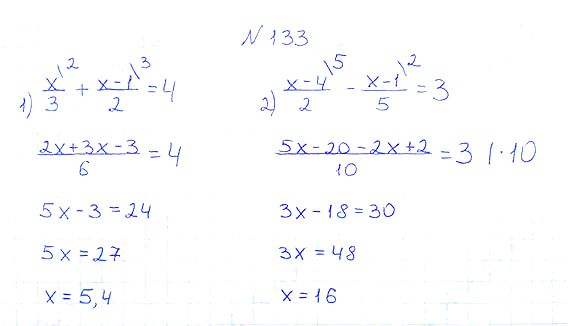 N 133
1) x\2/3 + x-1\3/2 = 4
2x+3x-3/6 = 4
5x-3=24
5x=27
x=5,4
2) x-4\5/2 - x-1\2/5 = 3
5x-20-2x+2/10 = 3 |·10
3x-18=30
3x=48
x=16